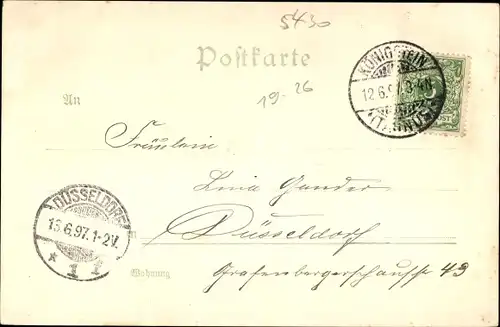 5430
Postkarte
KÖNIGSTEIN
12.6.97. 3-4N
(TAUNUS)
19-26
An
Fräulein
Lina Gander
DÜSSELDORF
13.6.97. 1-2V.
* 1 f
Düsseldorf
Wohnung
Grafenbergerchaussee 43